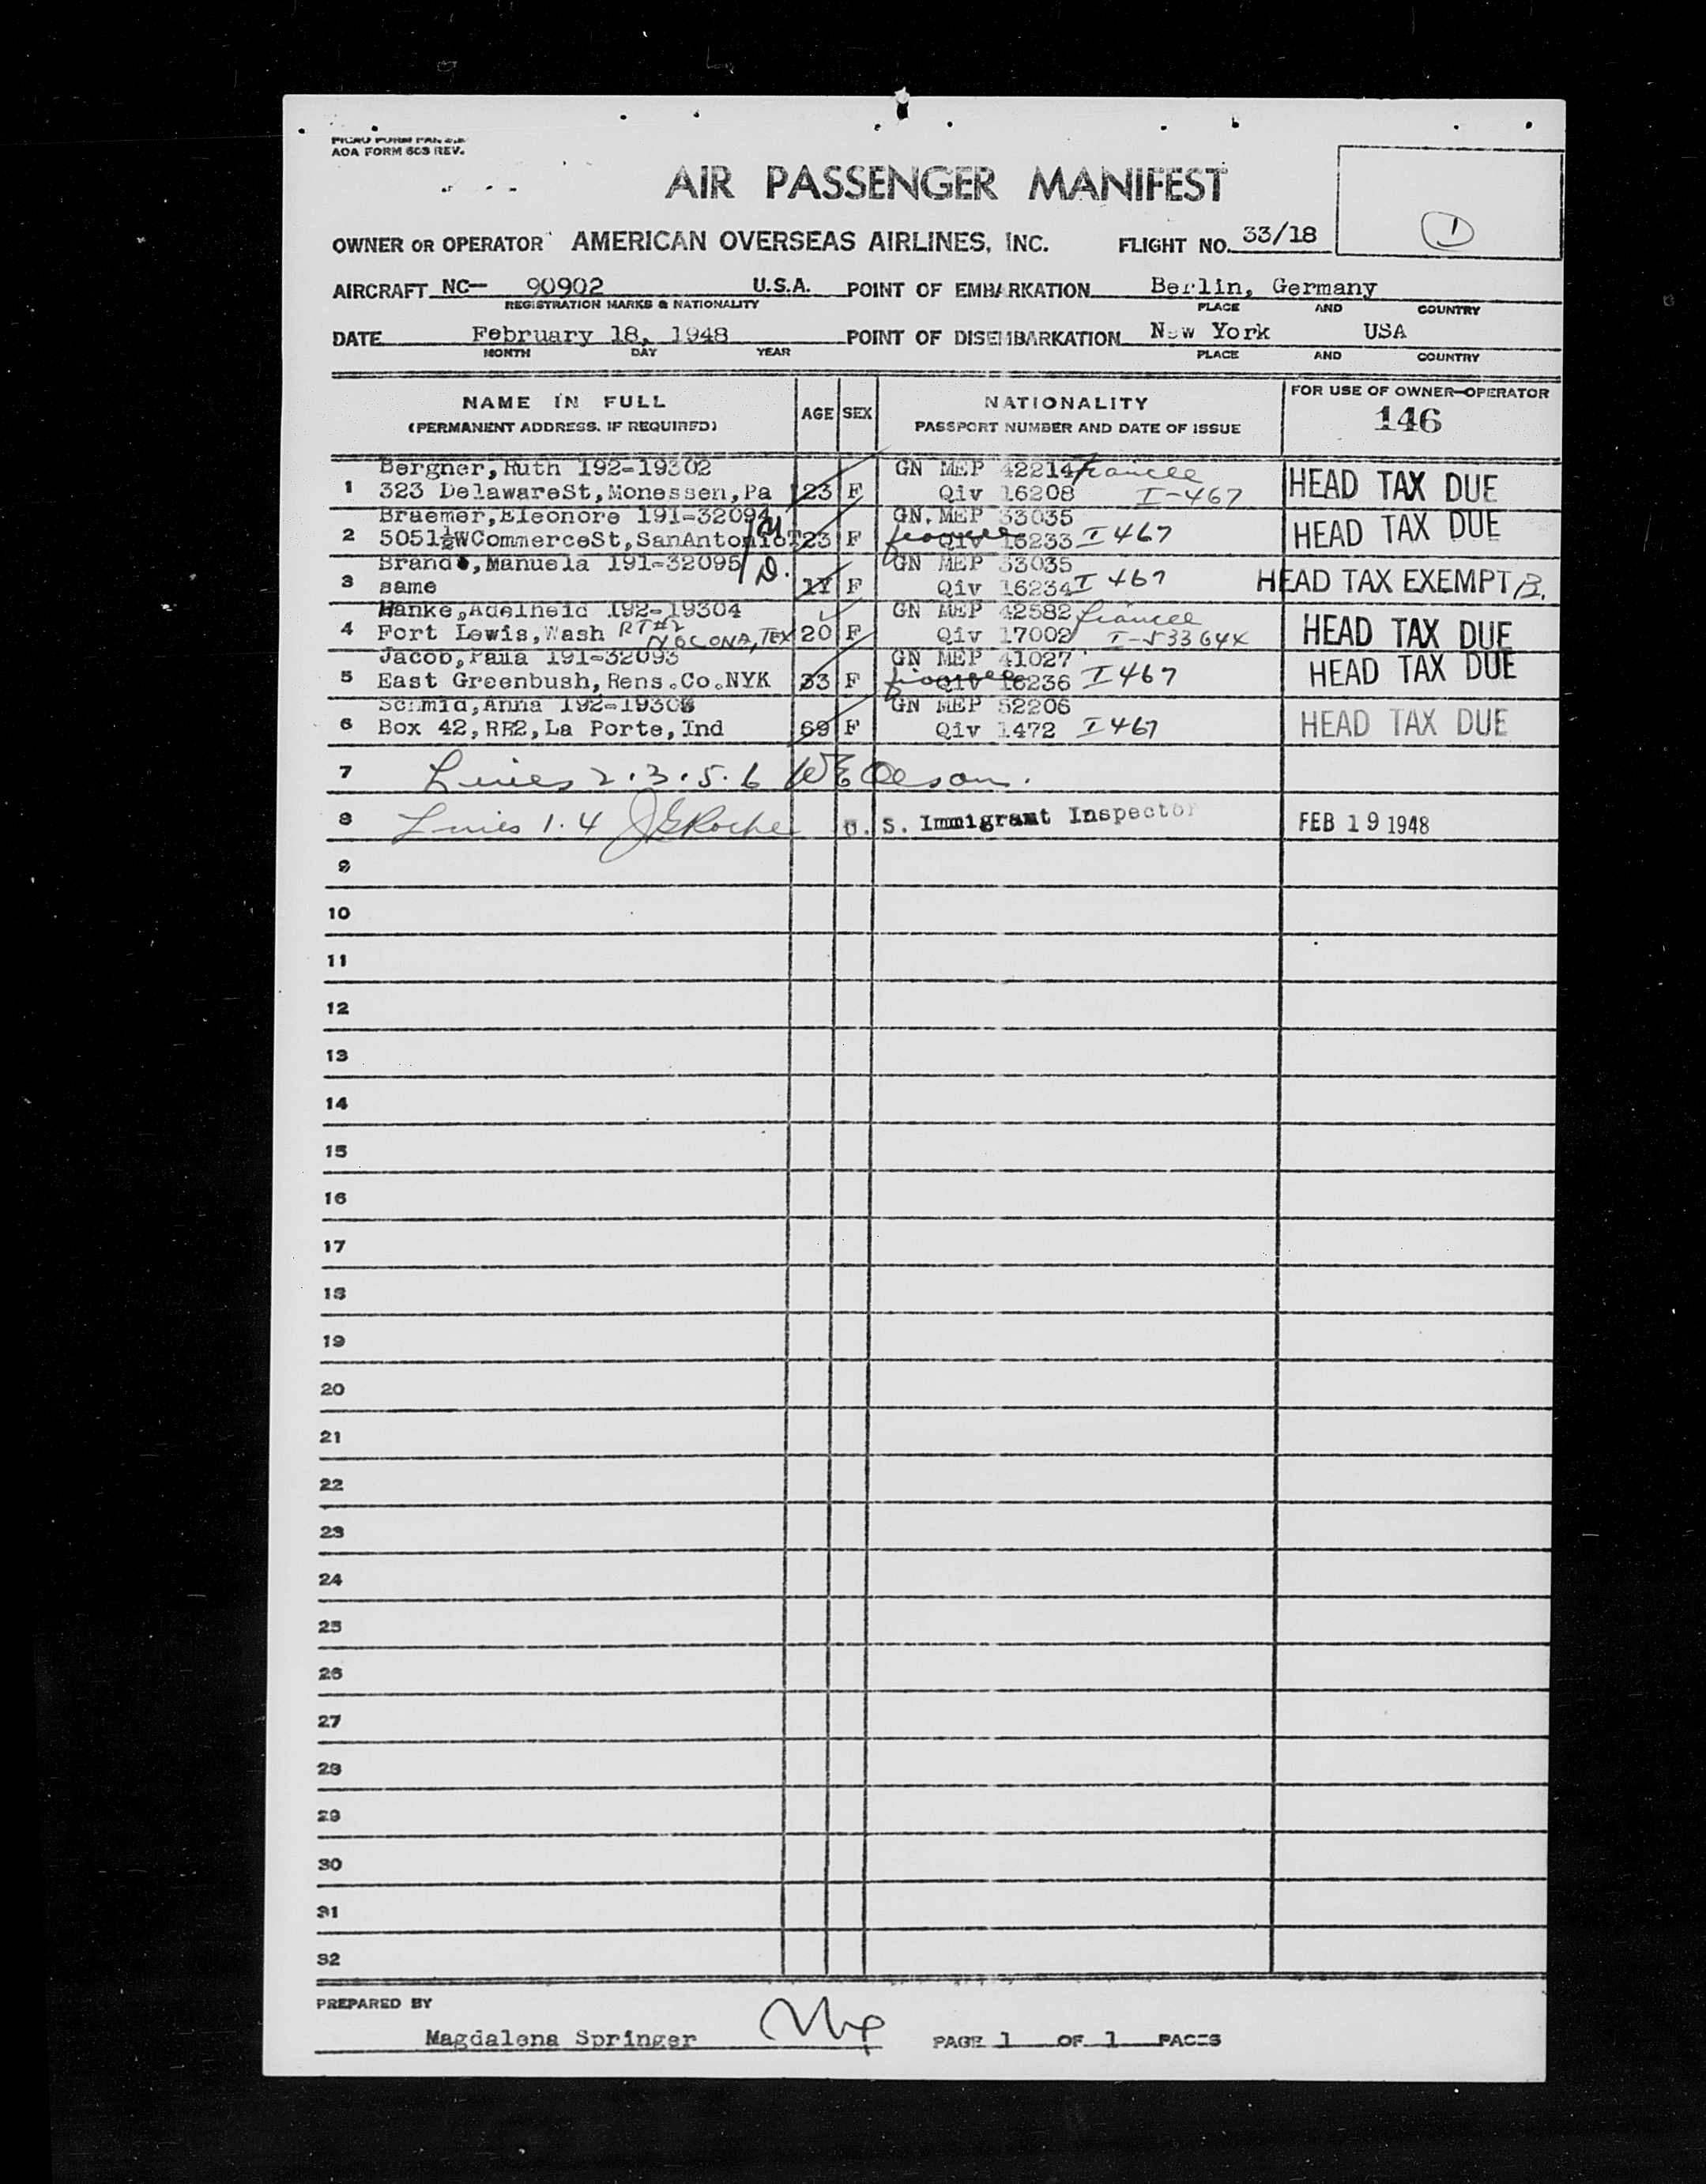 PICAO FORM PAN
AOA FORM 603 REV.
AIR PASSENGER MANIFEST
1
OWNER OR OPERATOR AMERICAN OVERSEAS AIRLINES, INC. FLIGHT NO. 33/18
AIRCRAFT NC— 90902 U.S.A. POINT OF EMBARKATION Berlin, Germany
REGISTRATION MARKS & NATIONALITY PLACE AND COUNTRY
DATE February 18, 1948 POINT OF DISEMBARKATION New York USA
MONTH DAY YEAR PLACE AND COUNTRY
NAME IN FULL AGE SEX NATIONALITY FOR USE OF OWNER-OPERATOR
(PERMANENT ADDRESS. IF REQUIRED) PASSPORT NUMBER AND DATE OF ISSUE 146
Bergner, Ruth 192-19302 GN MEP 42214 fiancee
1 323 DelawareSt, Monessen, Pa 23 F Qiv 16208 I-467 HEAD TAX DUE
Braemer, Eleonore 191-32094 GN. MEP 33035
2 5051½WCommerceSt, SanAntonioT 23 F fiancee Qiv 16233 I 467 HEAD TAX DUE
Brand, Manuela 191-32095 D. GN MEP 33035
3 same F Qiv 16234 I 467 HEAD TAX EXEMPT B.
Hanke, Adelheid 192-19304 GN MEP 42582 fiancee
4 Fort Lewis, Wash RT#2 NOCONA, TEX 20 F Qiv 17002 I-53364X HEAD TAX DUE
Jacob, Paula 191-32093 GN MEP 41027
5 East Greenbush, Rens.Co.NYK 33 F fiancee Qiv 16236 I 467 HEAD TAX DUE
Schmid, Anna 192-19306 GN MEP 52206
6 Box 42, RR2, La Porte, Ind 69 F Qiv 1472 I 467 HEAD TAX DUE
7 Lines 2.3.5.6 WE Oleson.
8 Lines 1.4 JERoche U. S. Immigrant Inspector FEB 19 1948
9
10
11
12
13
14
15
16
17
18
19
20
21
22
23
24
25
26
27
28
29
30
31
32
PREPARED BY
Magdalena Springer PAGE 1 OF 1 PAGES